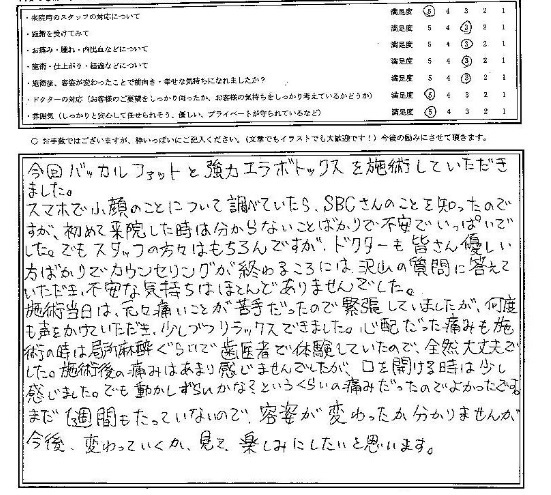 ・来院時のスタッフの対応について 満足度 5 4 3 2 1
・施術を受けてみて 満足度 5 4 3 2 1
・お痛み・腫れ・内出血などについて 満足度 5 4 3 2 1
・施術・仕上がり・経過などについて 満足度 5 4 3 2 1
・施術後、容姿が変わったことで前向き・幸せな気持ちになれましたか？ 満足度 5 4 3 2 1
・ドクターの対応（お客様のご要望をしっかり伺ったか、お客様の気持ちをしっかり考えているかどうか） 満足度 5 4 3 2 1
・雰囲気（しっかりと安心して任せられそう、優しい、プライベートが守られているなど） 満足度 5 4 3 2 1
○ お手数ではございますが、枠いっぱいにご記入ください。（文章でもイラストでも大歓迎です！）今後の励みにさせて頂きます。
今回バッカルファットと強力エラボトックスを施術していただき
ました。
スマホで小顔のことについて調べていたら、SBCさんのことを知ったので
すが、初めて来院した時は分からないことばかりで不安でいっぱいで
した。でもスタッフの方々はもちろんですが、ドクターも皆さん優しい
方ばかりでカウンセリングが終わるころには、沢山の質問に答えて
いただき、不安な気持ちはほとんどありませんでした。
施術当日は、元々痛いことが苦手だったので緊張していましたが、何度
も声をかけていただき、少しづつリラックスできました。心配だった痛みも施
術の時は局所麻酔ぐらいで歯医者で体験していたので、全然大丈夫で
した。施術後の痛みはあまり感じませんでしたが、口を開ける時は少し
感じました。でも動かしずらいかな？というくらいの痛みだったのでよかったです。
まだ1週間もたっていないので、容姿が変わったか分かりませんが、
今後、変わっていくか、見て、楽しみにしたいと思います。